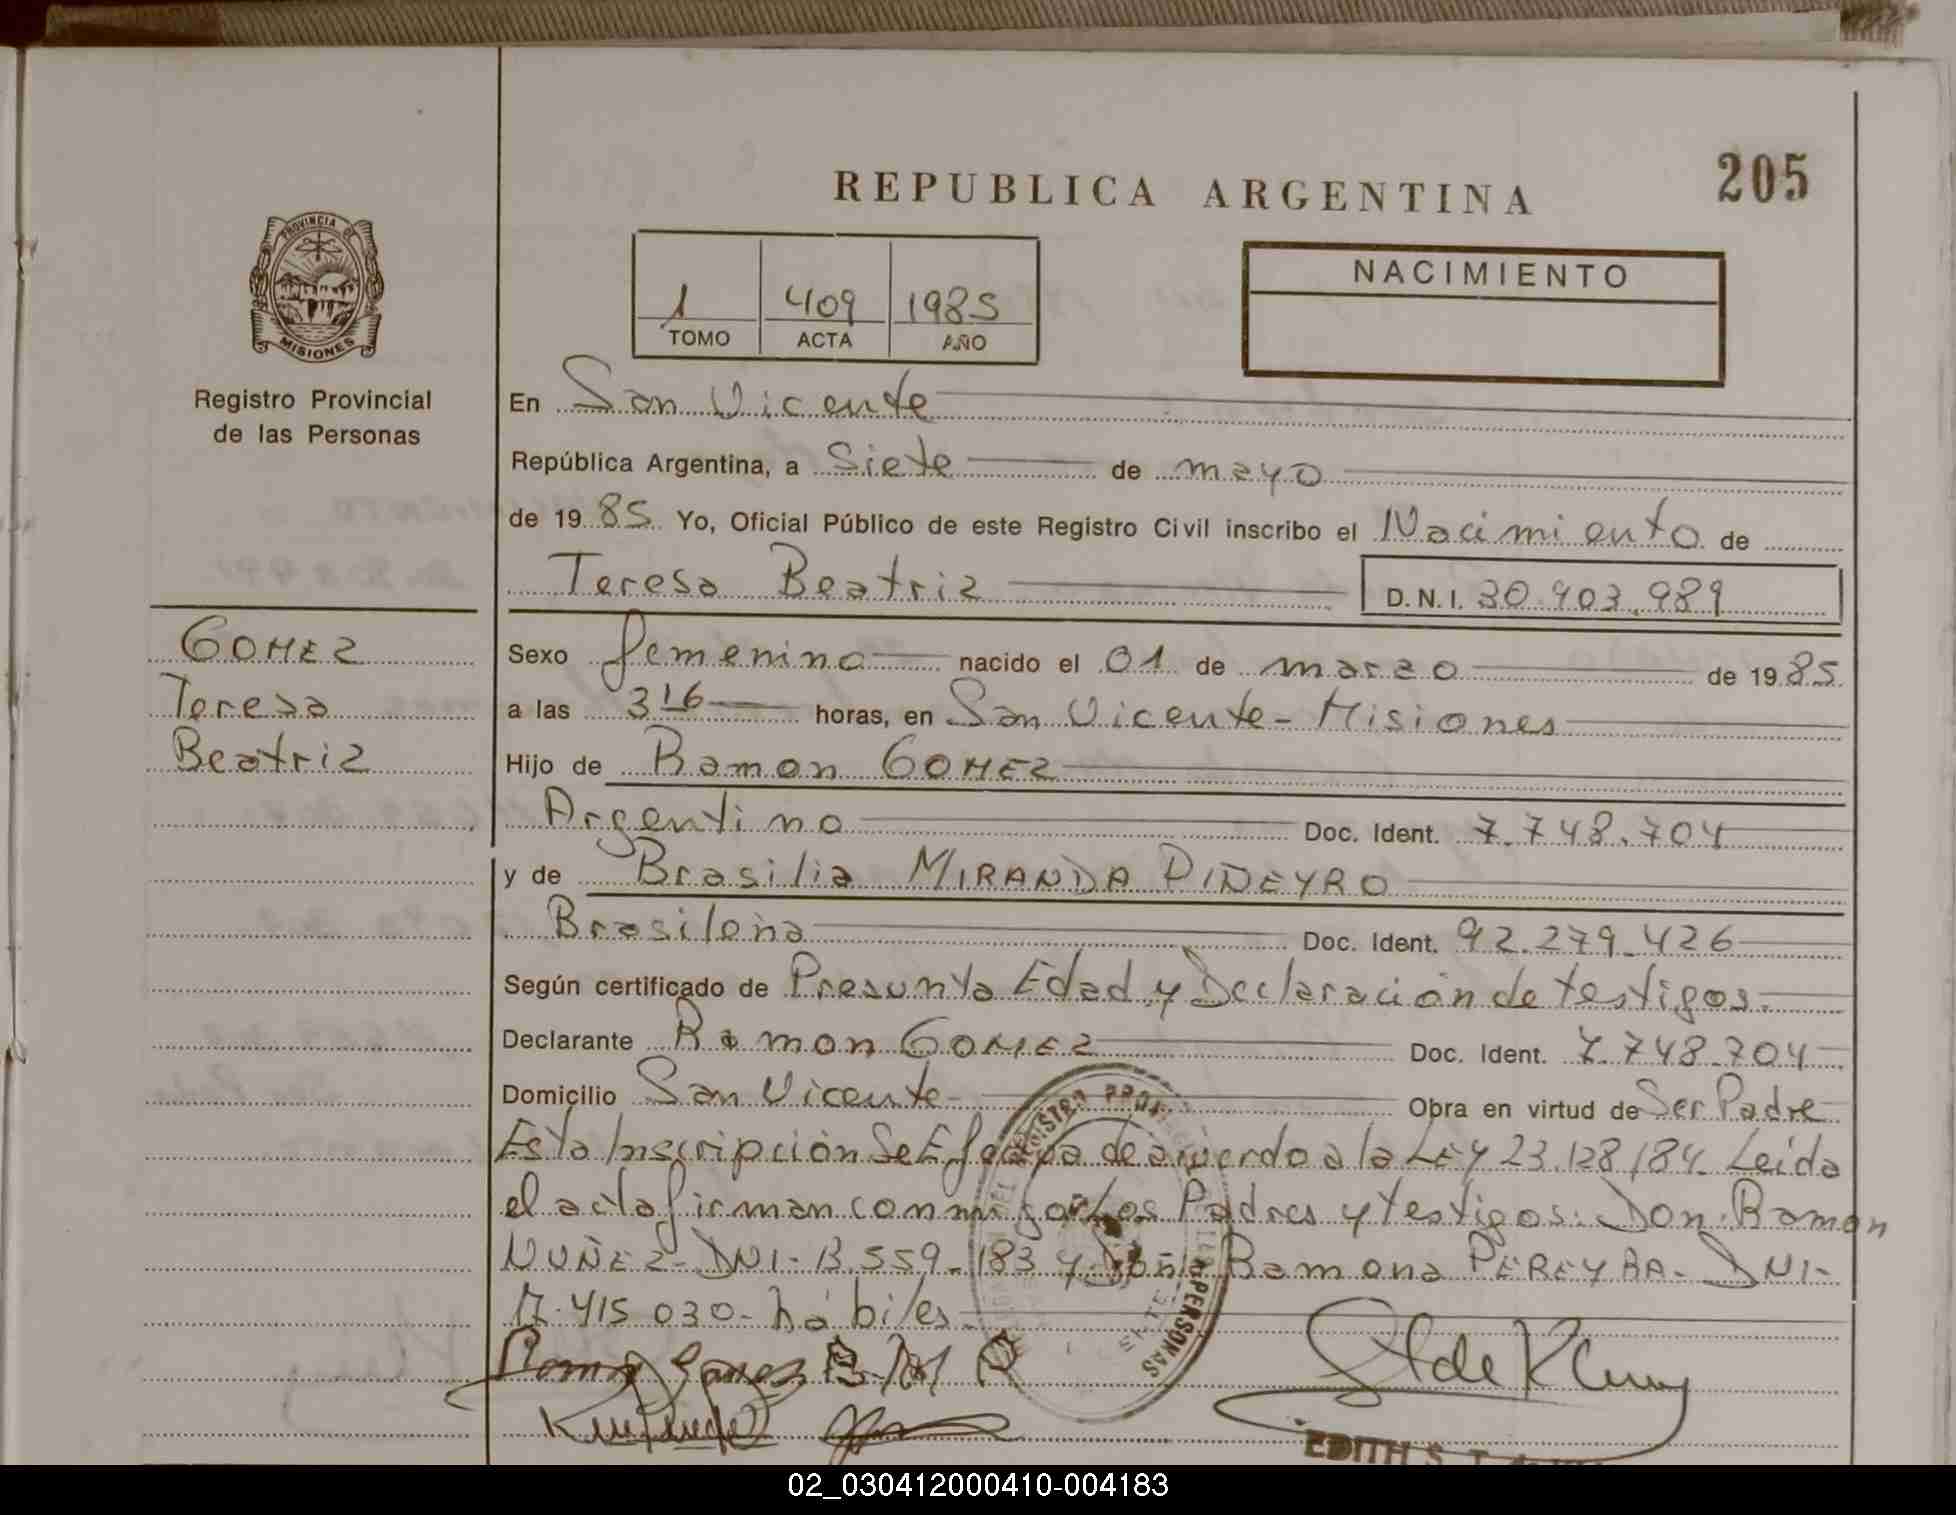 REPUBLICA ARGENTINA
205
PROVINCIA DE
MISIONES
Registro Provincial
de las Personas
1 409 1985
TOMO ACTA AÑO
NACIMIENTO
En San Vicente
República Argentina, a Siete de mayo
de 1985 Yo, Oficial Público de este Registro Civil inscribo el Nacimiento de
Teresa Beatriz D.N.I. 30.903.989
GOMEZ
Teresa
Beatriz
Sexo femenino nacido el 01 de marzo de 1985
a las 3 16 horas, en San Vicente - Misiones
Hijo de Ramon GOMEZ
Argentino Doc. Ident. 7.748.704
y de Brasilia MIRANDA PIÑEYRO
Brasileña Doc. Ident. 92.279.426
Según certificado de Presunta Edad y Declaración de testigos.
Declarante Ramon GOMEZ Doc. Ident. 7.748.704
Domicilio San Vicente Obra en virtud de Ser Padre
Esta Inscripción Se Efectua de acuerdo a la LEY 23.128/84. Leida
el acta firman conmigo Los Padres y testigos: Don Ramon
NUÑEZ - DNI - 13.559.183 y Doña Ramona PEREYRA - DNI -
415 030 - hábiles.
PERSONAS
EDITH S. T.
02_030412000410-004183